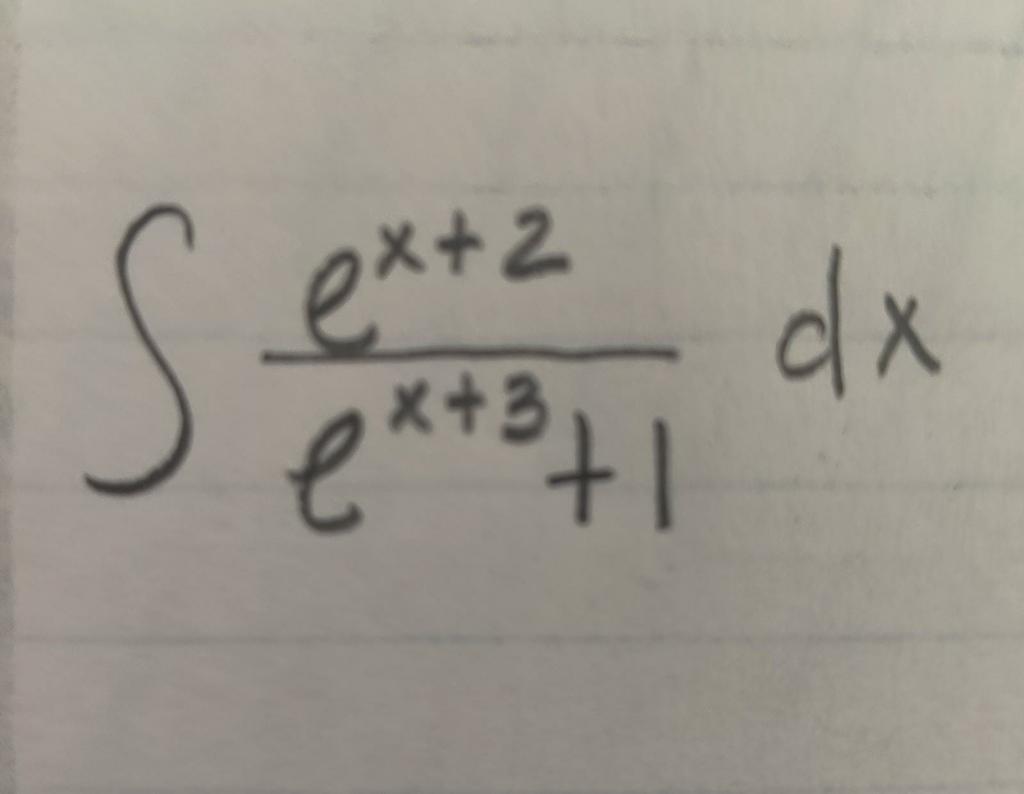 ∫ e^{x+2} / (e^{x+3}+1) dx